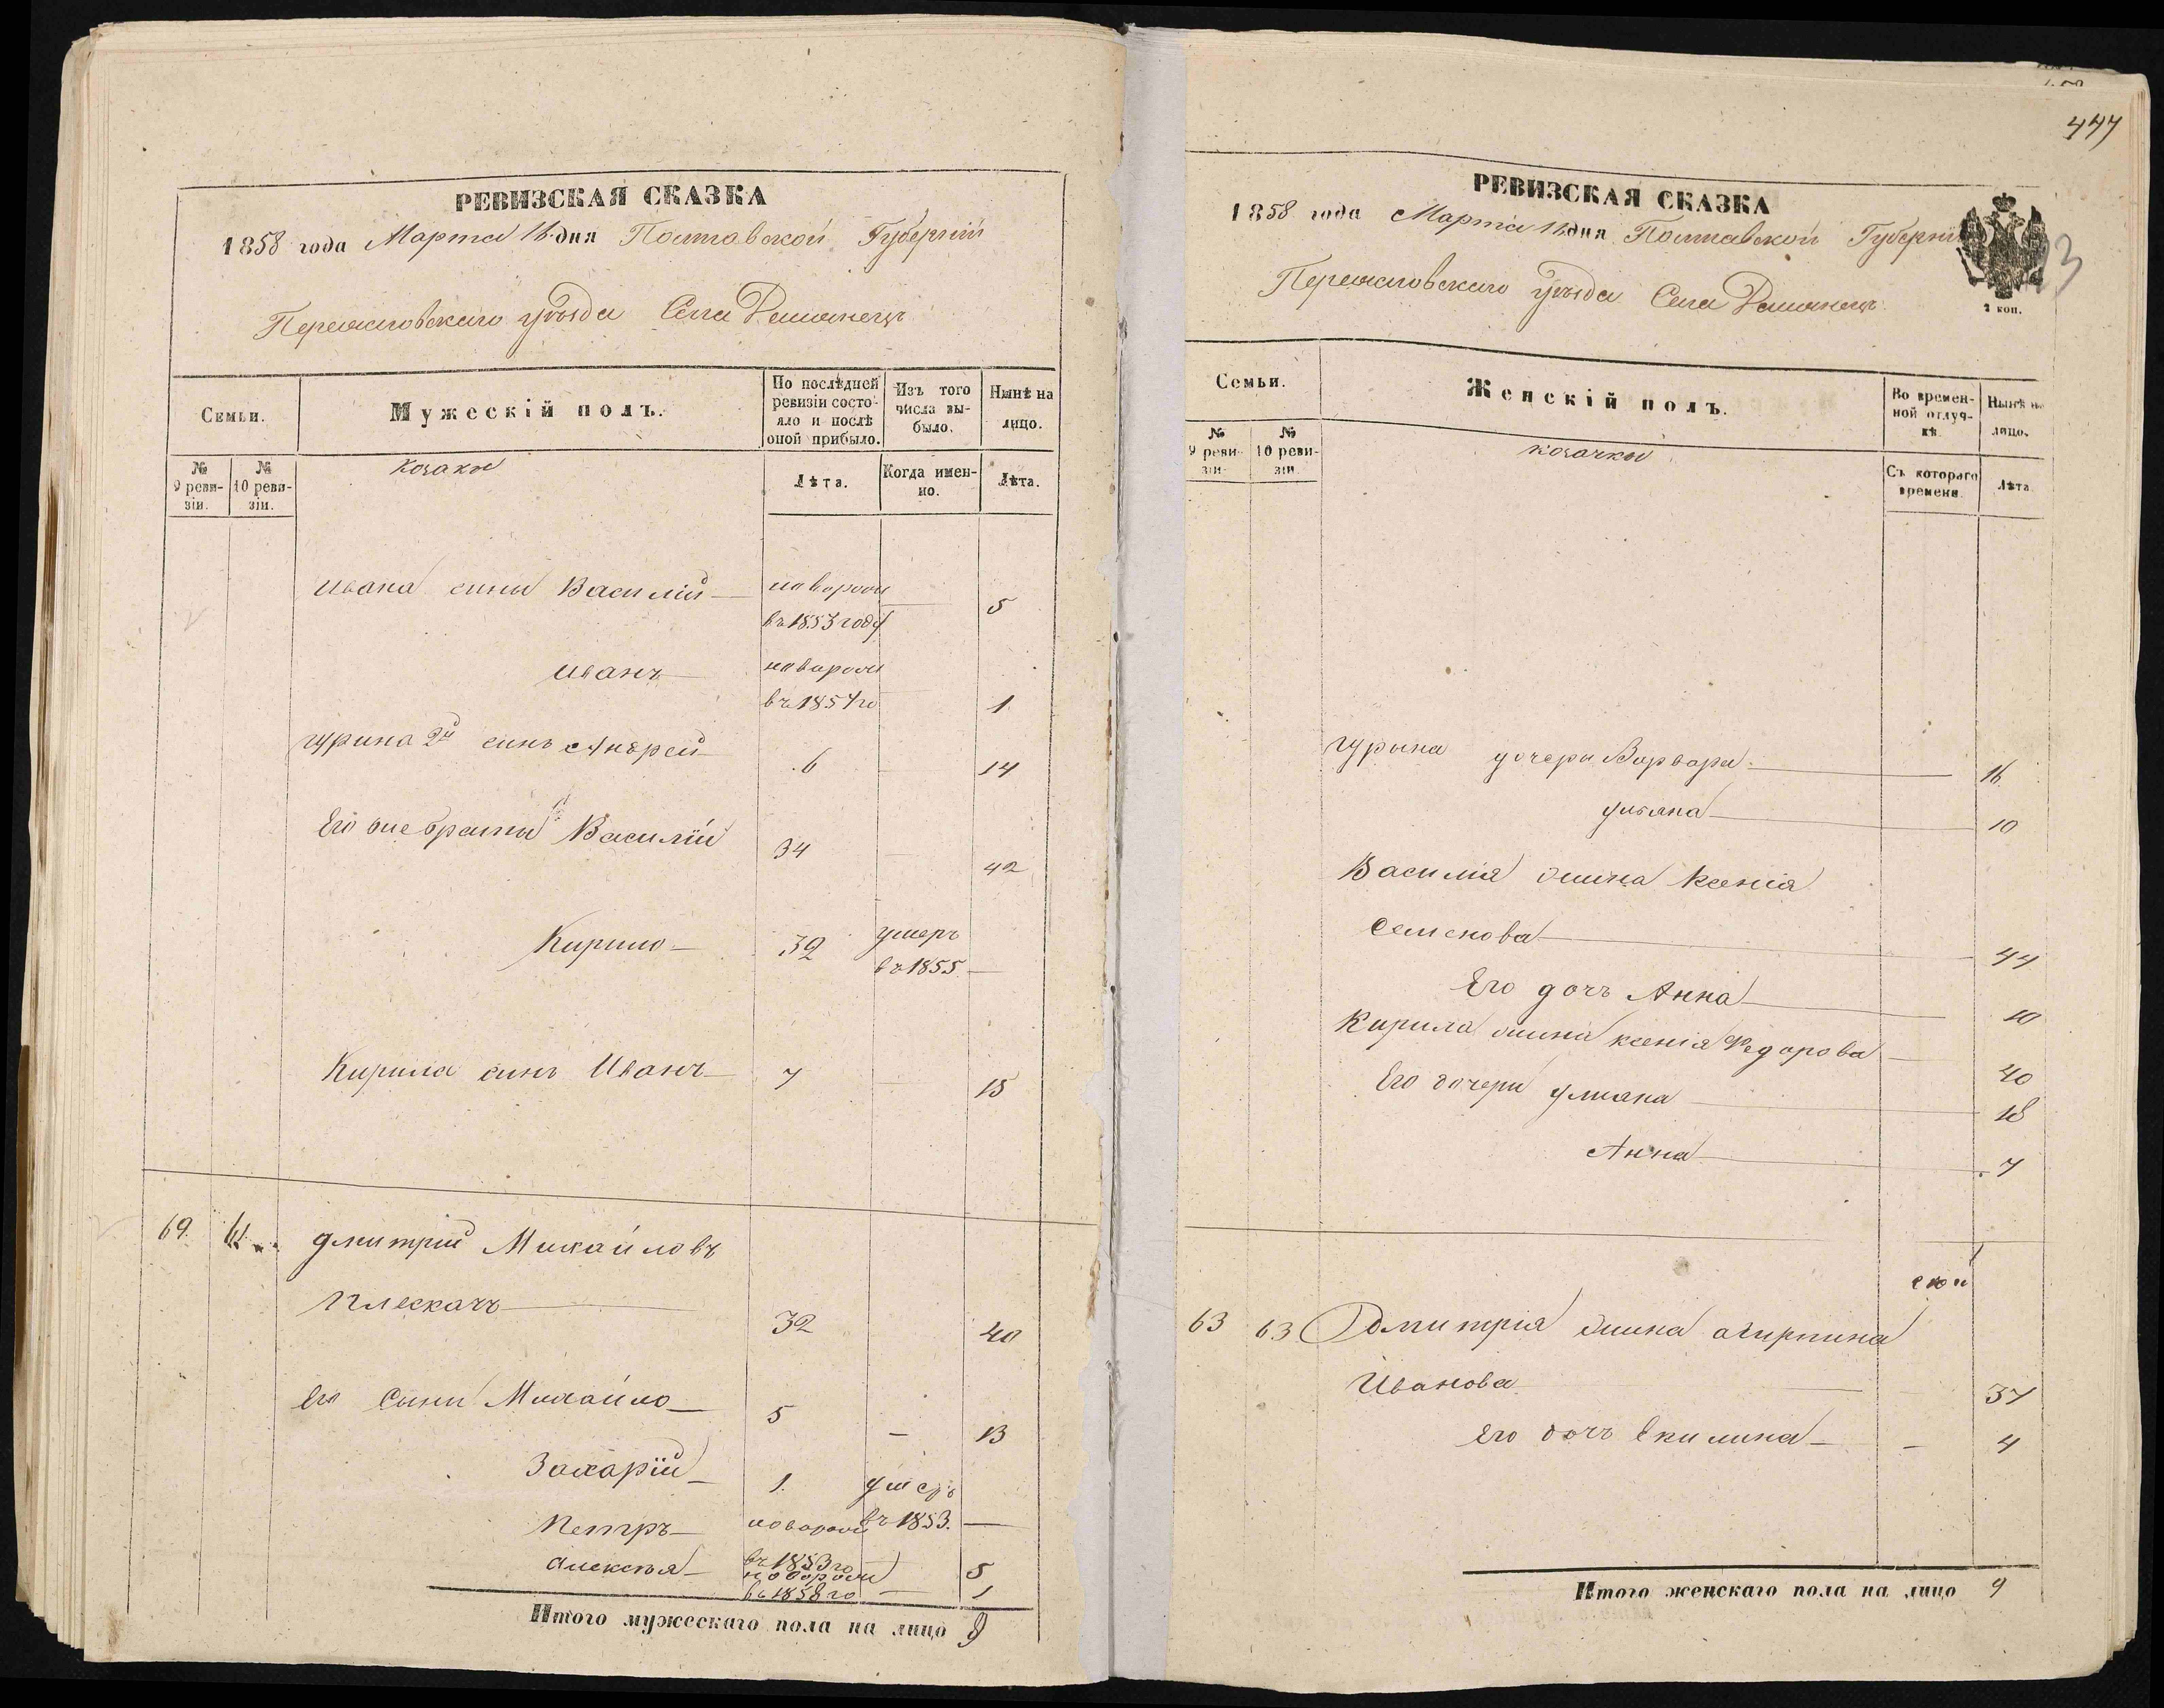 РЕВИЗСКАЯ СКАЗКА
1858 года Марта 18 дня Полтавской Губернии
Переяславского уѣзда Села
Семьи.
Мужескій полъ.
По послѣдней ревизіи состояло и послѣ оной прибыло.
Изъ того числа выбыло.
Нынѣ на лицо.
№ 9 ревизіи.
№ 10 ревизіи.
козаки
Лѣта.
Когда именно.
Лѣта.
Ивана сины Василій новорож 5
въ 1853 году
Иванъ новорож
въ 1857 го 1
гурина 2й синъ Андрей 6 14
Его братья Василій 34 42
Кирило 32 умеръ
въ 1855
Кирила синъ Иванъ 7 15
69. Дмитрий Михайловъ
Плескачъ 32 40
Его Сыни Михайло 5 13
Захарїй 1 умеръ
Петръ новорож въ 1853.
въ 1853 го 5
Алексѣя новорож
въ 1858 го 1
Итого мужескаго пола на лицо
447
РЕВИЗСКАЯ СКАЗКА
1858 года Марта 18 дня Полтавской Губерніи
3
Переяславского уѣзда Села
2 коп.
Семьи.
Женскій полъ.
Во временной отлучкѣ.
Нынѣ на лицо.
№ 9 ревизіи.
№ 10 ревизіи.
козачки
Съ котораго времени.
Лѣта
гурына дочери Варвара 16
Ульяна 10
Василія жина Ксенія
Семенова 44
Его дочъ Анна 10
Кирила жина ксенія Федорова 40
Его дочери улиана 18
Анна 7
63 63 Дмитрія жина
Иванова 37
Его дочъ Екилина 4
Итого женскаго пола на лицо 9